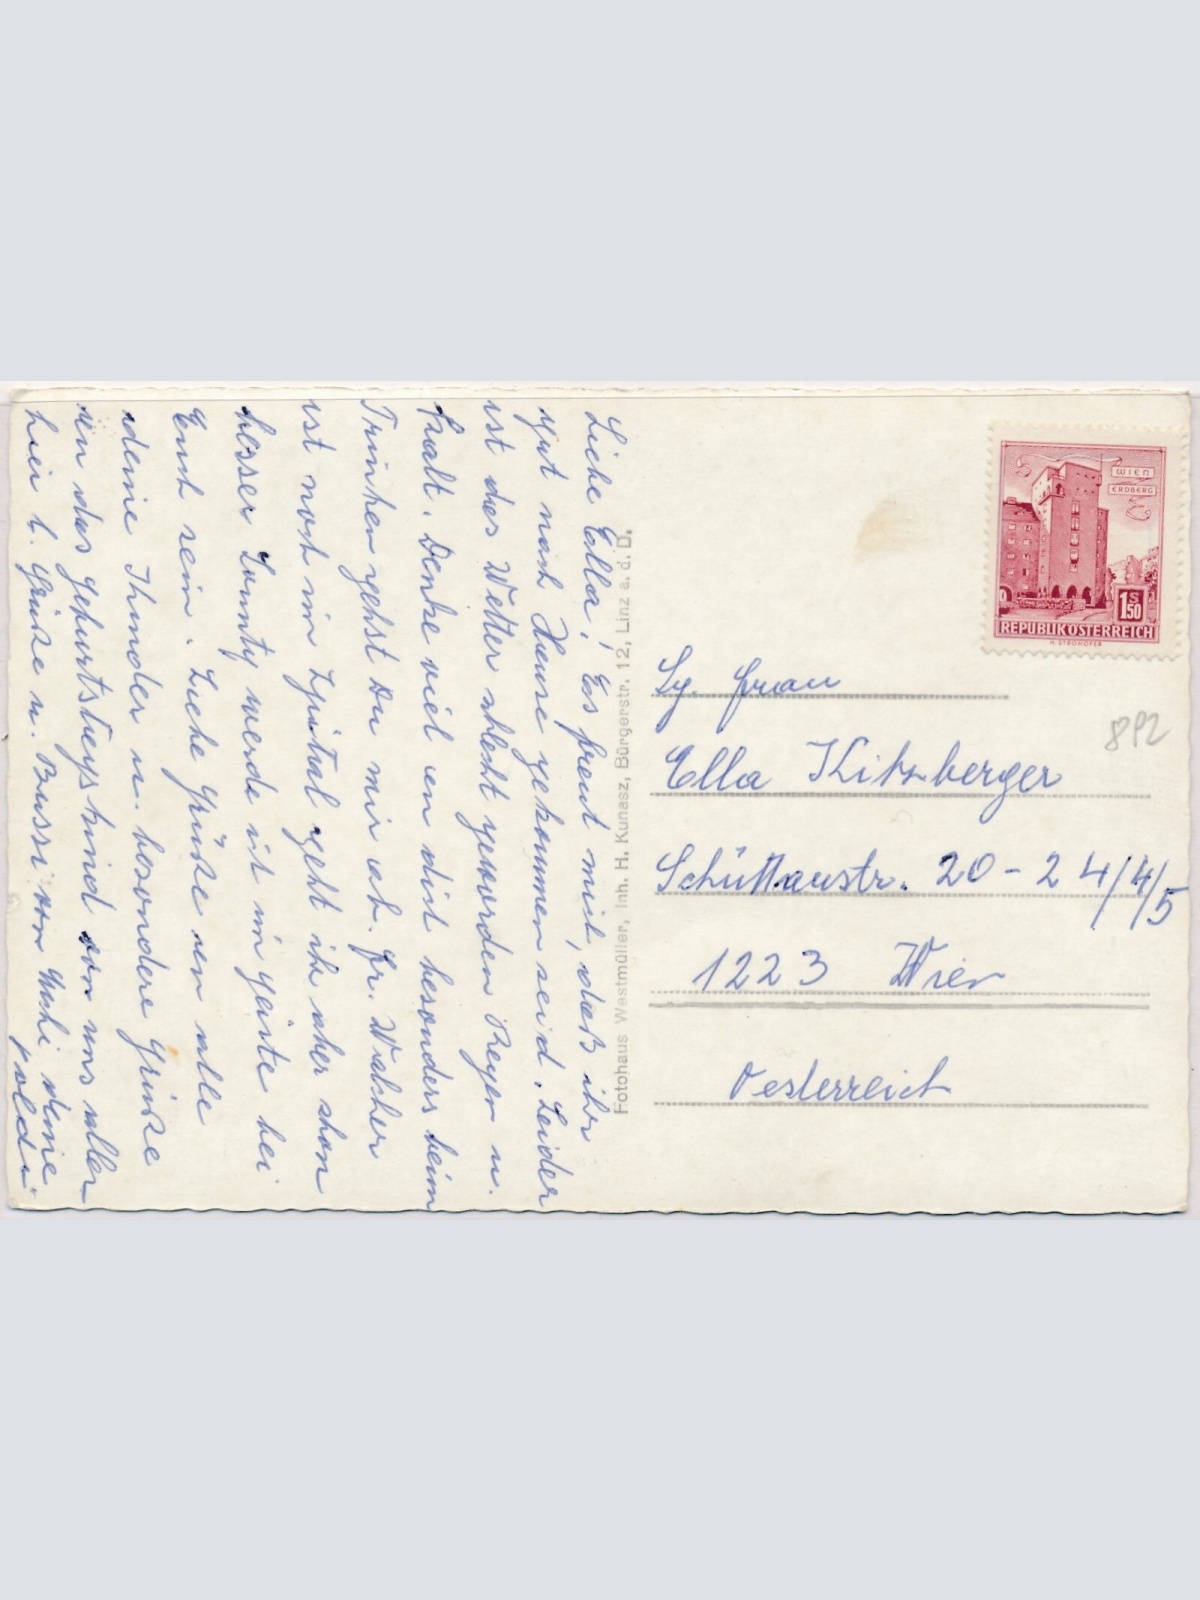 Liebe Ella! Es freut mich, daß ihr
gut nach Hause gekommen seid. Leider
ist das Wetter schlecht geworden Regen u.
kalt. Denke viel an dich besonders beim
Trinken gehst du mir ab. Fr. Walcher
ist noch im Spital geht ihr aber schon
besser Samty werde ich im Geiste bei
Euch sein. Liebe Grüße an alle
deine Kinder u. besondere Grüße
an das Geburtstagskind von uns allen
hier l. Grüße u. Bussi von deine
Poldi
Fotohaus Westmüller, Inh. H. Kunasz, Bürgerstr. 12, Linz a. d. D.
WIEN
ERDBERG
1 S 50
REPUBLIK ÖSTERREICH
H. STROHOFER
Sg. Frau
892
Ella Kitzberger
Schüttaustr. 20-24/4/5
1223 Wien
Oesterreich